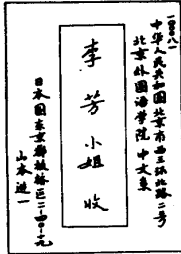 一〇〇〇八一
中华人民共和国北京市西三环北路二号
北京外国语学院 中文系
李芳小姐收
日本国东京都板桥区二-四〇-十九
山本进一